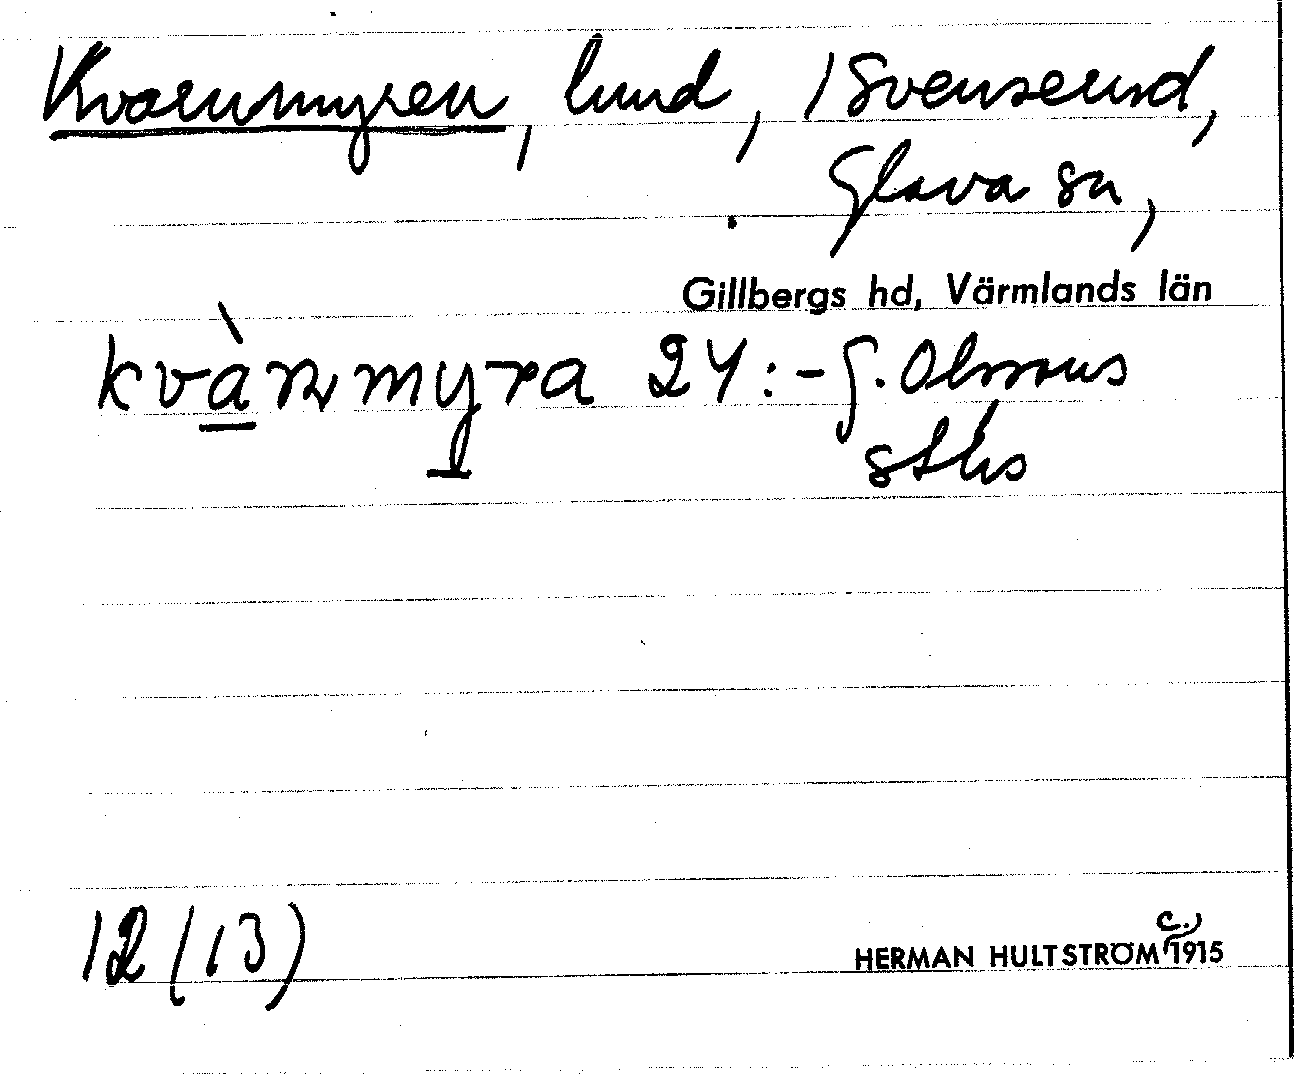 Kvarnmyren, lund, 1 Svenserud,
Glava sn,
Gillbergs hd, Värmlands län
kvànmyra 24:- G. Olssons
sths
12 (13)
HERMAN HULTSTRÖM (c.) 1915